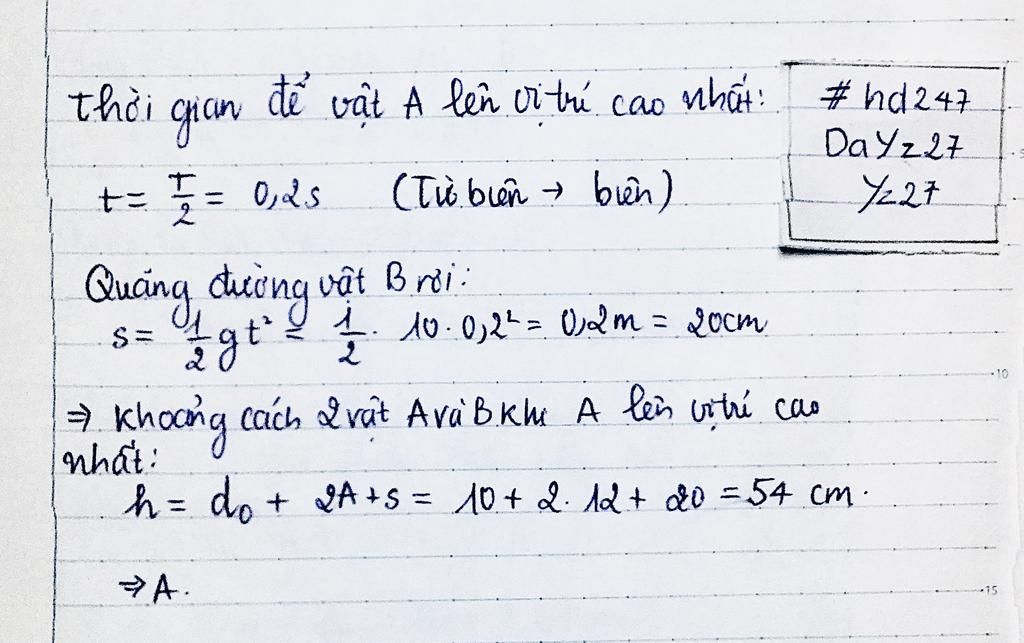 Thời gian để vật A lên vị trí cao nhất:
# hd247
DaYz27
Yz27
t = T/2 = 0,2s (Từ biên → biên)
Quãng đường vật B rơi:
s = 1/2 gt² = 1/2 . 10 . 0,2² = 0,2m = 20cm
⇒ Khoảng cách 2 vật A và B khi A lên vị trí cao
nhất:
h = d₀ + 2A + s = 10 + 2. 12 + 20 = 54 cm.
⇒ A.
10
15